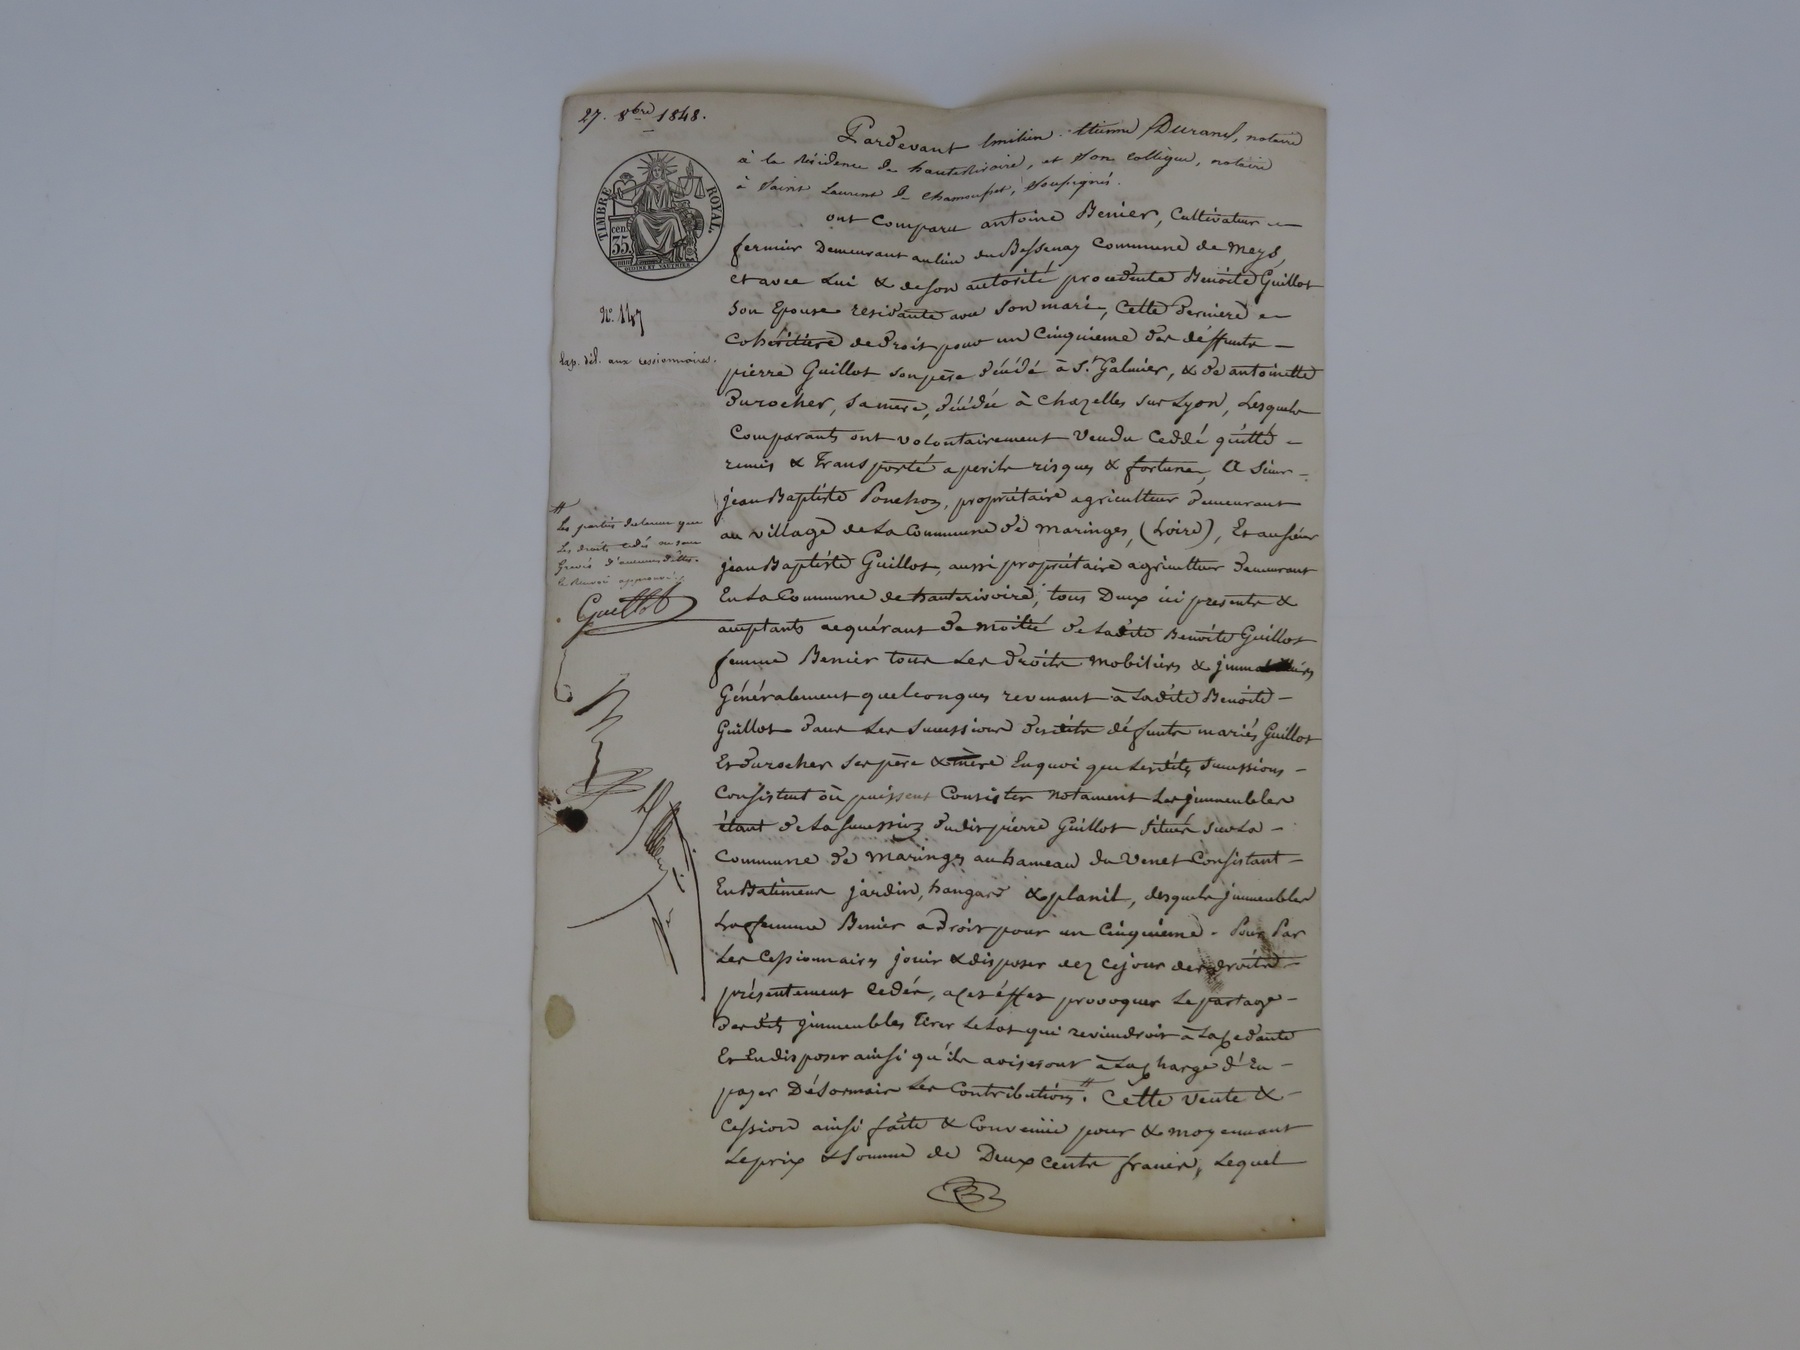 27. 8bre 1848.
TIMBRE ROYAL.
cen. 35
No. 147
Exp. dél. aux cessionnaires.
Pardevant Emilien Etienne Durand, notaire
à la Résidence de hauterivoire, et Son Collègue, notaire
à Saint Laurent de Chamousset, Soussignés.
ont comparu antoine Benier, Cultivateur
fermier Demeurant au lieu du Bessenay Commune de Meys,
et avec Lui & de son autorité procedente Benoite Guillot
Son Epouse residante avec Son mari, Cette Derniere
cohéritiere de droit pour un Cinquieme des déffunts
pierre Guillot son père décédé à St. Galmier, & de antoinette
Durocher, Sa mère, décédée à Chazelles sur Lyon, Lesquels
Comparants ont volontairement Vendu Ceddé quitté
remis & Transporté a perils risques & fortune, A Sieur
jean Baptiste Ponchon, propriétaire agriculteur demeurant
au village de La Commune de Maringes, (Loire), Et au sieur
jean Baptiste Guillot, aussi propriétaire agriculteur Demeurant
En La Commune de hauterivoire, tous Deux ici presents &
acceptants acquérant de moitié de Ladite Benoite Guillot
femme Benier tous Les droits Mobiliers & jmmobiliers
Généralement quelconques revenant à Ladite Benoite
Guillot dans Les Successions desdits défunts mariés Guillot
Et Durocher Ses père & mère En quoi que Lesdites Successions
Consistent où puissent Consister notament Les jmmeubles
étant de La Succession dudit pierre Guillot Situés Sur La
Commune de Maringes au hameau du Venet Consistant
En Batiments jardin, hangard & planil, desquels jmmeubles
La femme Benier a Droit pour un Cinquieme. Pour Par
Les Cessionnaires jouir & disposer dez Cejour des droits
présentement Cedés, a Cet éffet provoquer Le partage
Desdits jmmeubles Tirer Le Lot qui reviendroit à La Cedante
Et En disposer ainsi qu'ils aviseront à La Charge d'En
payer Désormais Les Contributions. # Cette vente &
Cession ainsi faite & Convenüe pour & moyennant
Le prix & Somme de Deux cents francs, Lequel
#
Les parties déclarent que
Les droits cedés ne sont
Grevés d'aucunes dettes.
Le Renvoi approuvé
Guillot